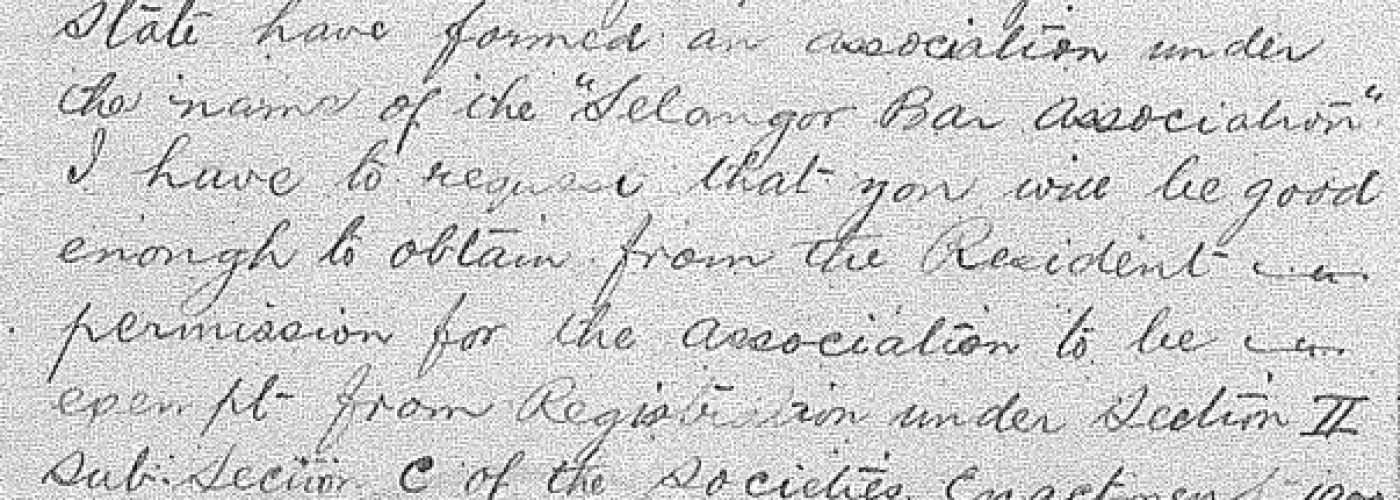 State have formed an association under
the name of the "Selangor Bar Association"
I have to request that you will be good
enough to obtain from the Resident
permission for the Association to be
exempt from Registration under Section II
Sub: Section C of the Societies Enactment